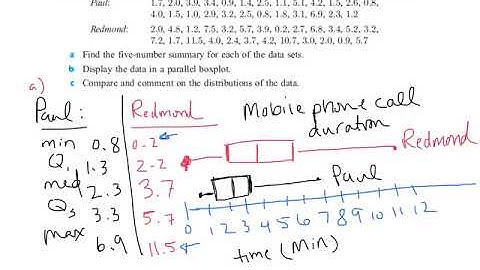 Paul: 1.7, 2.0, 3.9, 3.4, 0.9, 1.4, 2.5, 1.1, 5.1, 4.2, 1.5, 2.6, 0.8,
4.0, 1.5, 1.0, 2.9, 3.2, 2.5, 0.8, 1.8, 3.1, 6.9, 2.3, 1.2
Redmond: 2.0, 4.8, 1.2, 7.5, 3.2, 5.7, 3.9, 0.2, 2.7, 6.8, 3.4, 5.2, 3.2,
7.2, 1.7, 11.5, 4.0, 2.4, 3.7, 4.2, 10.7, 3.0, 2.0, 0.9, 5.7
a Find the five-number summary for each of the data sets.
b Display the data in a parallel boxplot.
c Compare and comment on the distributions of the data.
a)
Paul: Redmond
min 0.8 0.2
Q1 1.3 2.2
med 2.3 3.7
Q3 3.3 5.7
max 6.9 11.5
Mobile phone call
duration
Redmond
Paul
0 1 2 3 4 5 6 7 8 9 10 11 12
time (Min)